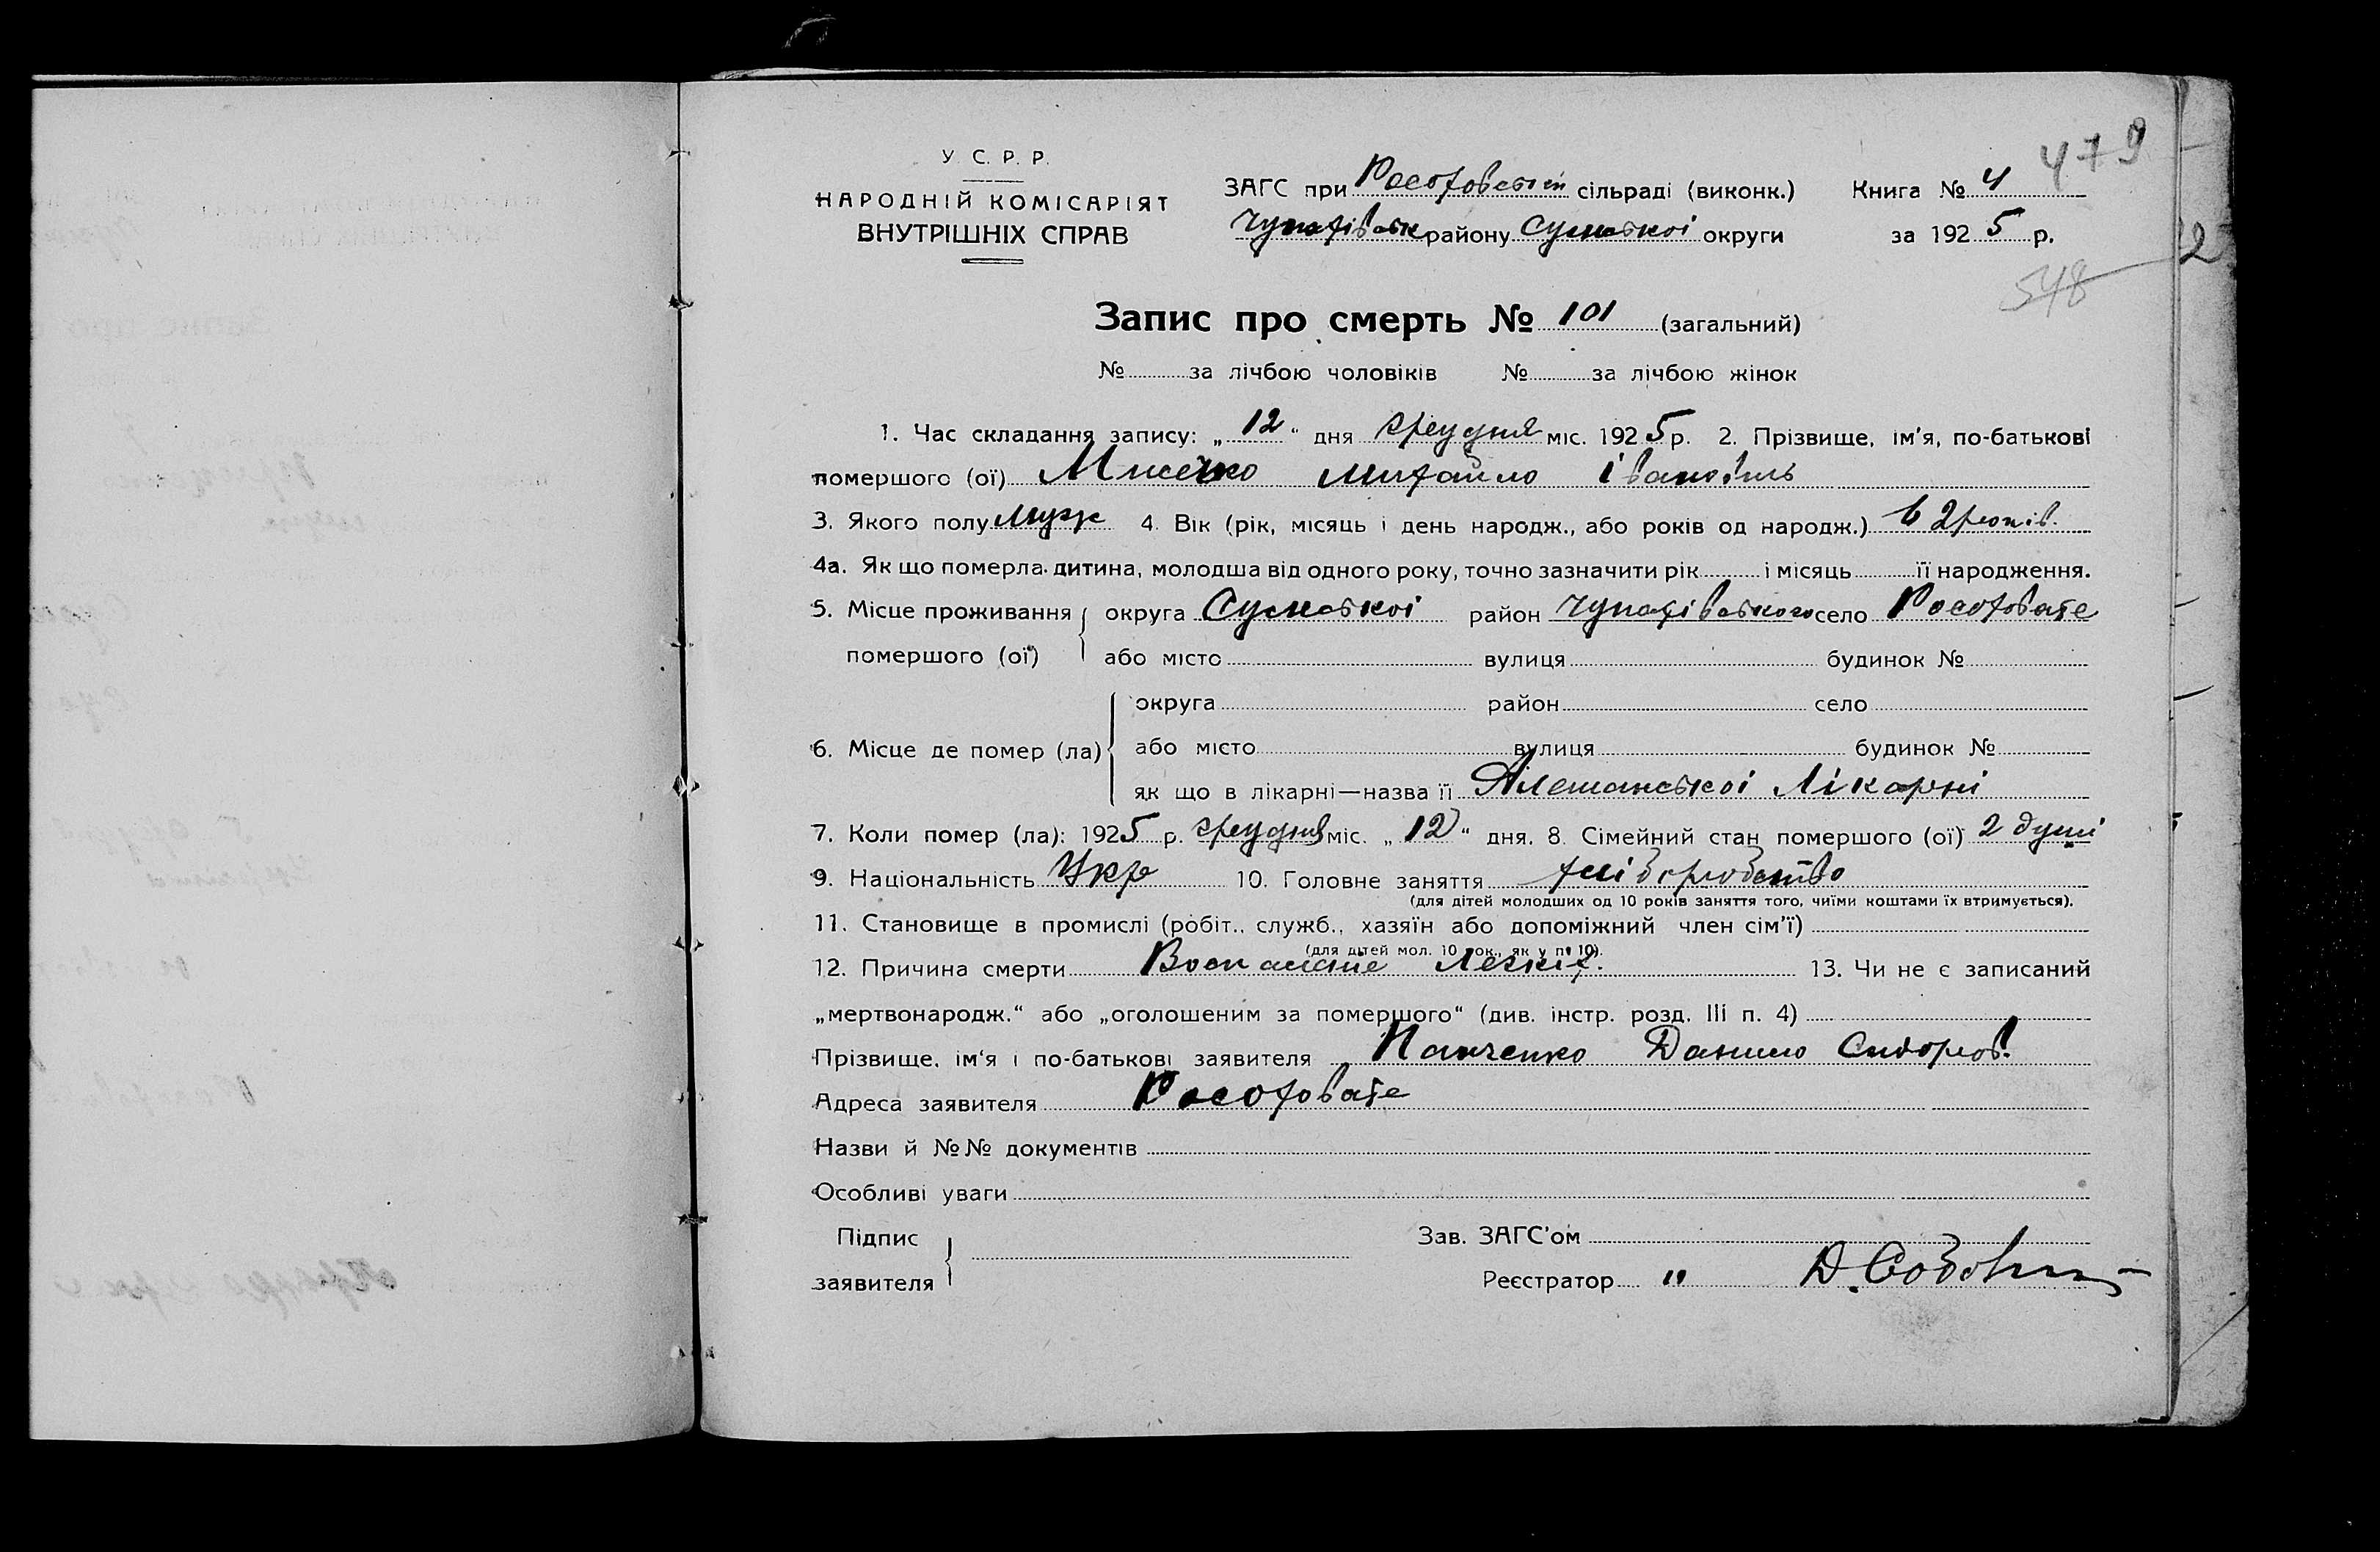 479
У. С. Р. Р.
НАРОДНІЙ КОМІСАРІЯТ
ВНУТРІШНІХ СПРАВ
ЗАГС при сільраді (виконк.) Книга № 4
Чупахівськ району Сумської округи за 1925 р.
548
Запис про смерть № 101 (загальний)
№ за лічбою чоловіків № за лічбою жінок
1. Час складання запису: „12“ дня греудня міс. 1925 р. 2. Прізвище, ім'я, по-батькові
помершого (ої) Михайло
3. Якого полу Муж 4. Вік (рік, місяць і день народж., або років од народж.) 62 років.
4а. Як що померла дитина, молодша від одного року, точно зазначити рік і місяць її народження.
5. Місце проживання округа Сумської район Чупахівського село Росохвате
помершого (ої) або місто вулиця будинок №
округа район село
6. Місце де помер (ла) або місто вулиця будинок №
як що в лікарні—назва її Лікарні
7. Коли помер (ла): 1925 р. греудня міс. „12“ дня. 8. Сімейний стан помершого (ої) 2 душі
9. Національність Укр 10. Головне заняття
(для дітей молодших од 10 років заняття того, чиїми коштами їх втримується).
11. Становище в промислі (робіт., служб., хазяїн або допоміжний член сім'ї)
(для дітей мол. 10 рок., як у п. 10).
12. Причина смерти Легких. 13. Чи не є записаний
„мертвонародж.“ або „оголошеним за помершого“ (див. інстр. розд. III п. 4)
Прізвище, ім'я і по-батькові заявителя Панченко Данило Сидоров.
Адреса заявителя Росохвате
Назви й №№ документів
Особливі уваги
Підпис
заявителя
Зав. ЗАГС'ом
Реєстратор "